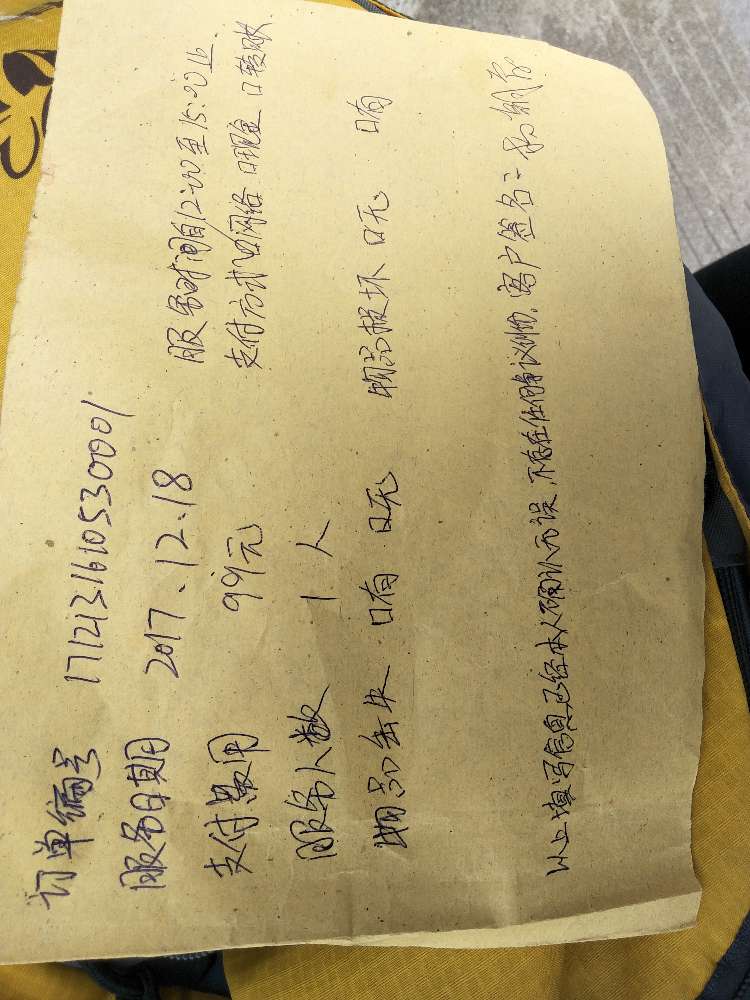 订单编号 1712131610530001
服务日期 2017.12.18 服务时间自12:00至15:00止
支付费用 99元 支付方式 ☑网络 口现金 口转账
服务人数 1人
物品丢失 口有 口无 物品损坏 口无 口有
以上填写信息已经本人确认无误,不存在任何争议纠纷,客户签名: